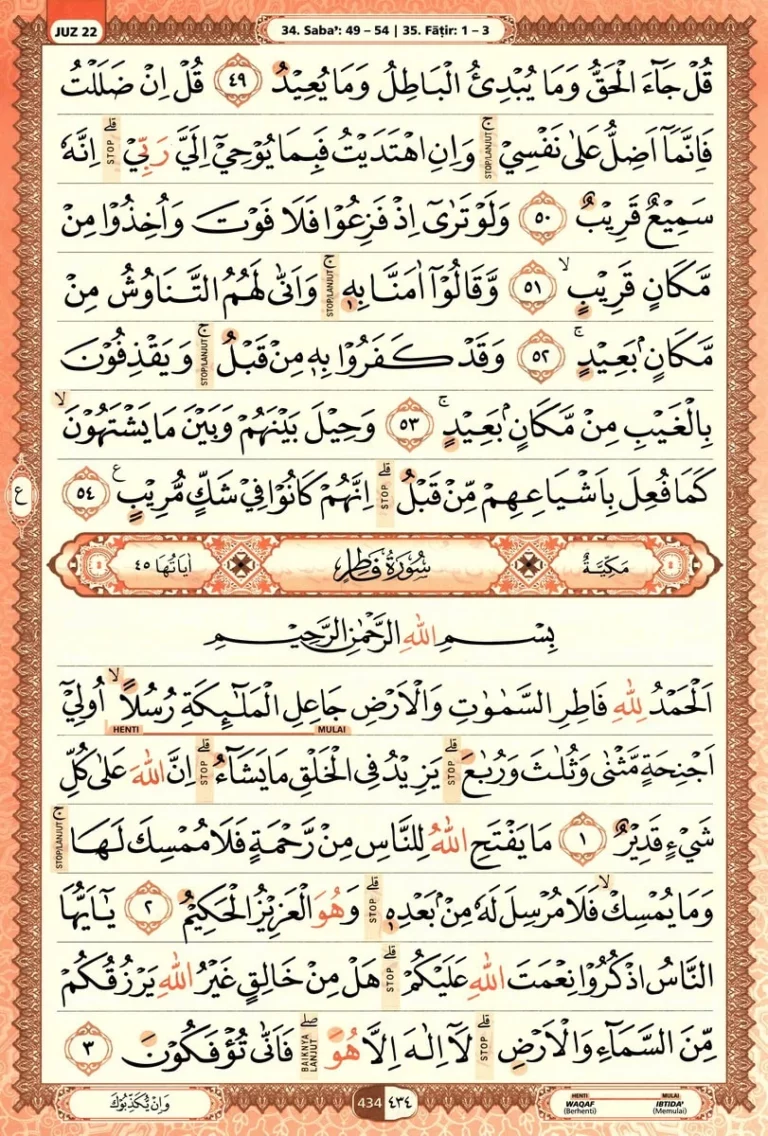 JUZ 22
34. Saba’: 49 – 54 | 35. Fāṭir: 1 – 3
قُلْ جَاۤءَ الْحَقُّ وَمَا يُبْدِئُ الْبَاطِلُ وَمَا يُعِيْدُ ٤٩ قُلْ اِنْ ضَلَلْتُ
فَاِنَّمَآ اَضِلُّ عَلٰى نَفْسِيْۚ STOP/LANJUT وَاِنِ اهْتَدَيْتُ فَبِمَا يُوْحِيْٓ اِلَيَّ رَبِّيْۗ STOP اِنَّهٗ
سَمِيْعٌ قَرِيْبٌ ٥٠ وَلَوْ تَرٰىٓ اِذْ فَزِعُوْا فَلَا فَوْتَ وَاُخِذُوْا مِنْ
مَّكَانٍ قَرِيْبٍۙ ٥١ وَّقَالُوْٓا اٰمَنَّا بِهٖۚ STOP/LANJUT وَاَنّٰى لَهُمُ التَّنَاوُشُ مِنْ
مَّكَانٍۢ بَعِيْدٍۚ ٥٢ وَقَدْ كَفَرُوْا بِهٖ مِنْ قَبْلُۚ STOP/LANJUT وَيَقْذِفُوْنَ
بِالْغَيْبِ مِنْ مَّكَانٍۢ بَعِيْدٍۚ ٥٣ وَحِيْلَ بَيْنَهُمْ وَبَيْنَ مَا يَشْتَهُوْنَۙ
كَمَا فُعِلَ بِاَشْيَاعِهِمْ مِّنْ قَبْلُۗ STOP اِنَّهُمْ كَانُوْا فِيْ شَكٍّ مُّرِيْبٍ ࣖ ٥٤
ع
مَكِّيَّةٌ سُوْرَةُ فَاطِرٍ اٰيَاتُهَا ٤٥
بِسْمِ اللّٰهِ الرَّحْمٰنِ الرَّحِيْمِ
اَلْحَمْدُ لِلّٰهِ فَاطِرِ السَّمٰوٰتِ وَالْاَرْضِ جَاعِلِ الْمَلٰۤىِٕكَةِ رُسُلًاۙ اُولِيْٓ
HENTI MULAI
اَجْنِحَةٍ مَّثْنٰى وَثُلٰثَ وَرُبٰعَۗ STOP يَزِيْدُ فِى الْخَلْقِ مَا يَشَاۤءُۗ STOP اِنَّ اللّٰهَ عَلٰى كُلِّ
شَيْءٍ قَدِيْرٌ ١ مَا يَفْتَحِ اللّٰهُ لِلنَّاسِ مِنْ رَّحْمَةٍ فَلَا مُمْسِكَ لَهَاۚ STOP/LANJUT
وَمَا يُمْسِكْۙ فَلَا مُرْسِلَ لَهٗ مِنْۢ بَعْدِهٖۗ STOP وَهُوَ الْعَزِيْزُ الْحَكِيْمُ ٢ يٰٓاَيُّهَا
النَّاسُ اذْكُرُوْا نِعْمَتَ اللّٰهِ عَلَيْكُمْۗ STOP هَلْ مِنْ خَالِقٍ غَيْرُ اللّٰهِ يَرْزُقُكُمْ
مِّنَ السَّمَاۤءِ وَالْاَرْضِۗ STOP لَآ اِلٰهَ اِلَّا هُوَۖ BAIKNYA LANJUT فَاَنّٰى تُؤْفَكُوْنَ ٣
وَاِنْ يُّكَذِّبُوْكَ
434 ٤٣٤
HENTI MULAI
WAQAF IBTIDA'
(Berhenti) (Memulai)